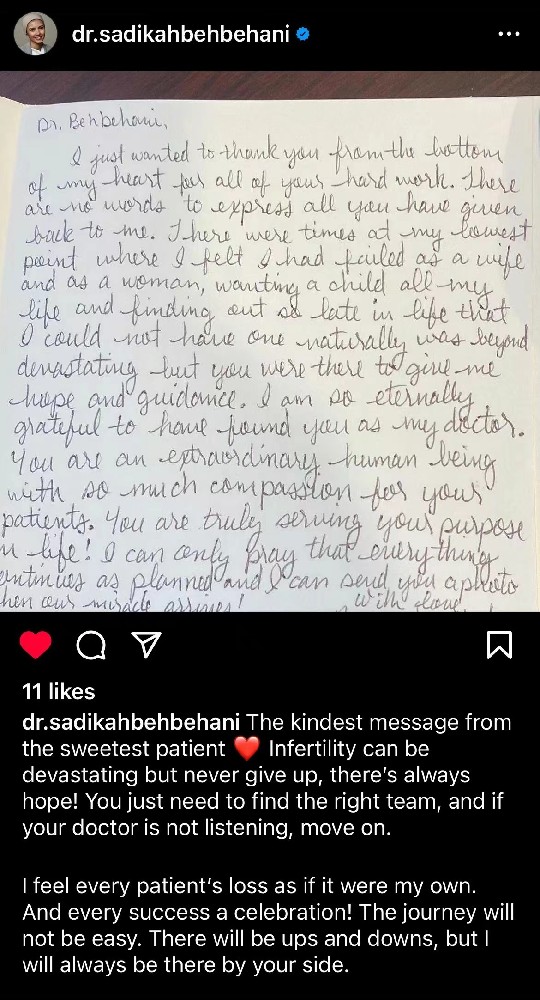 dr.sadikahbehbehani
Dr. Behbehani,
I just wanted to thank you from the bottom
of my heart for all of your hard work. There
are no words to express all you have given
back to me. There were times at my lowest
point where I felt I had failed as a wife
and as a woman, wanting a child all my
life and finding out so late in life that
I could not have one naturally was beyond
devastating but you were there to give me
hope and guidance. I am so eternally
grateful to have found you as my doctor.
You are an extraordinary human being
with so much compassion for your
patients. You are truly serving your purpose
n life! I can only pray that everything
ontinues as planned and I can send you a photo
hen our miracle arrives! With love,
11 likes
dr.sadikahbehbehani The kindest message from
the sweetest patient ❤️ Infertility can be
devastating but never give up, there's always
hope! You just need to find the right team, and if
your doctor is not listening, move on.
I feel every patient's loss as if it were my own.
And every success a celebration! The journey will
not be easy. There will be ups and downs, but I
will always be there by your side.